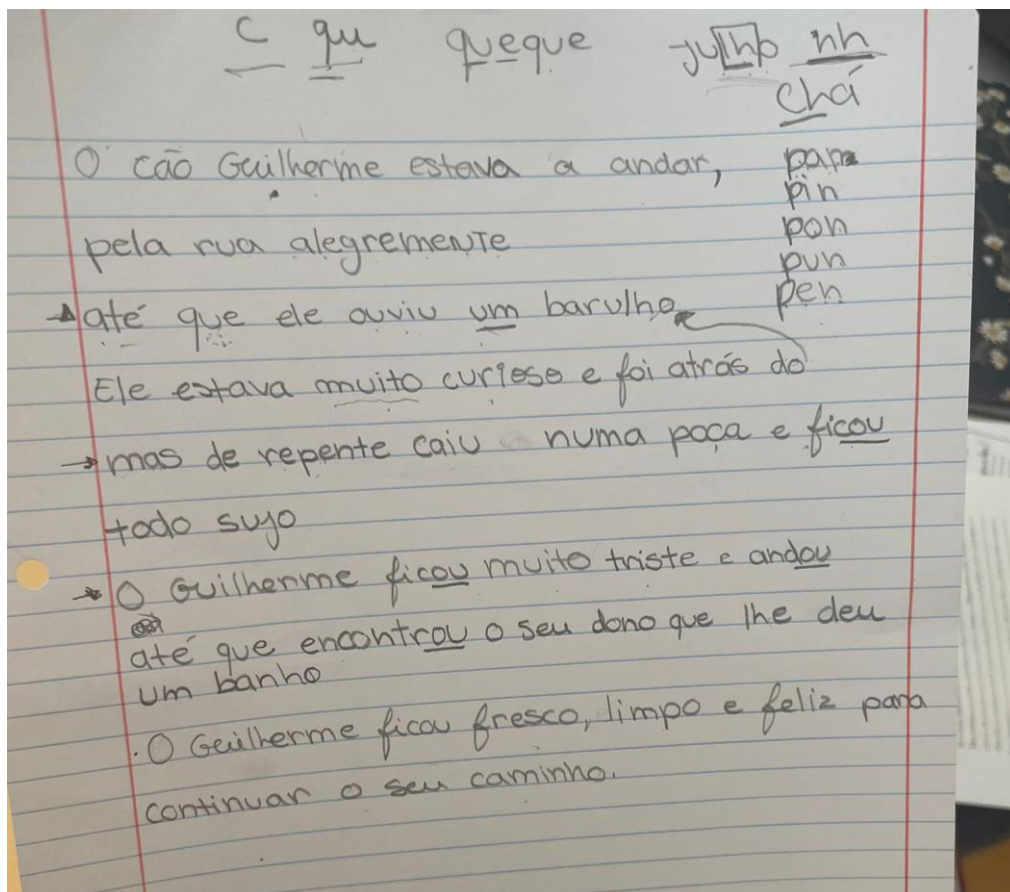 c qu queque julho nh
chá
O cão Guilherme estava a andar,
pela rua alegremente
até que ele ouviu um barulho
Ele estava muito curioso e foi atrás do
mas de repente caiu numa poça e ficou
todo sujo
O Guilherme ficou muito triste e andou
até que encontrou o seu dono que lhe deu
um banho
. O Guilherme ficou fresco, limpo e feliz para
continuar o seu caminho.
pan
pin
pon
pun
pen